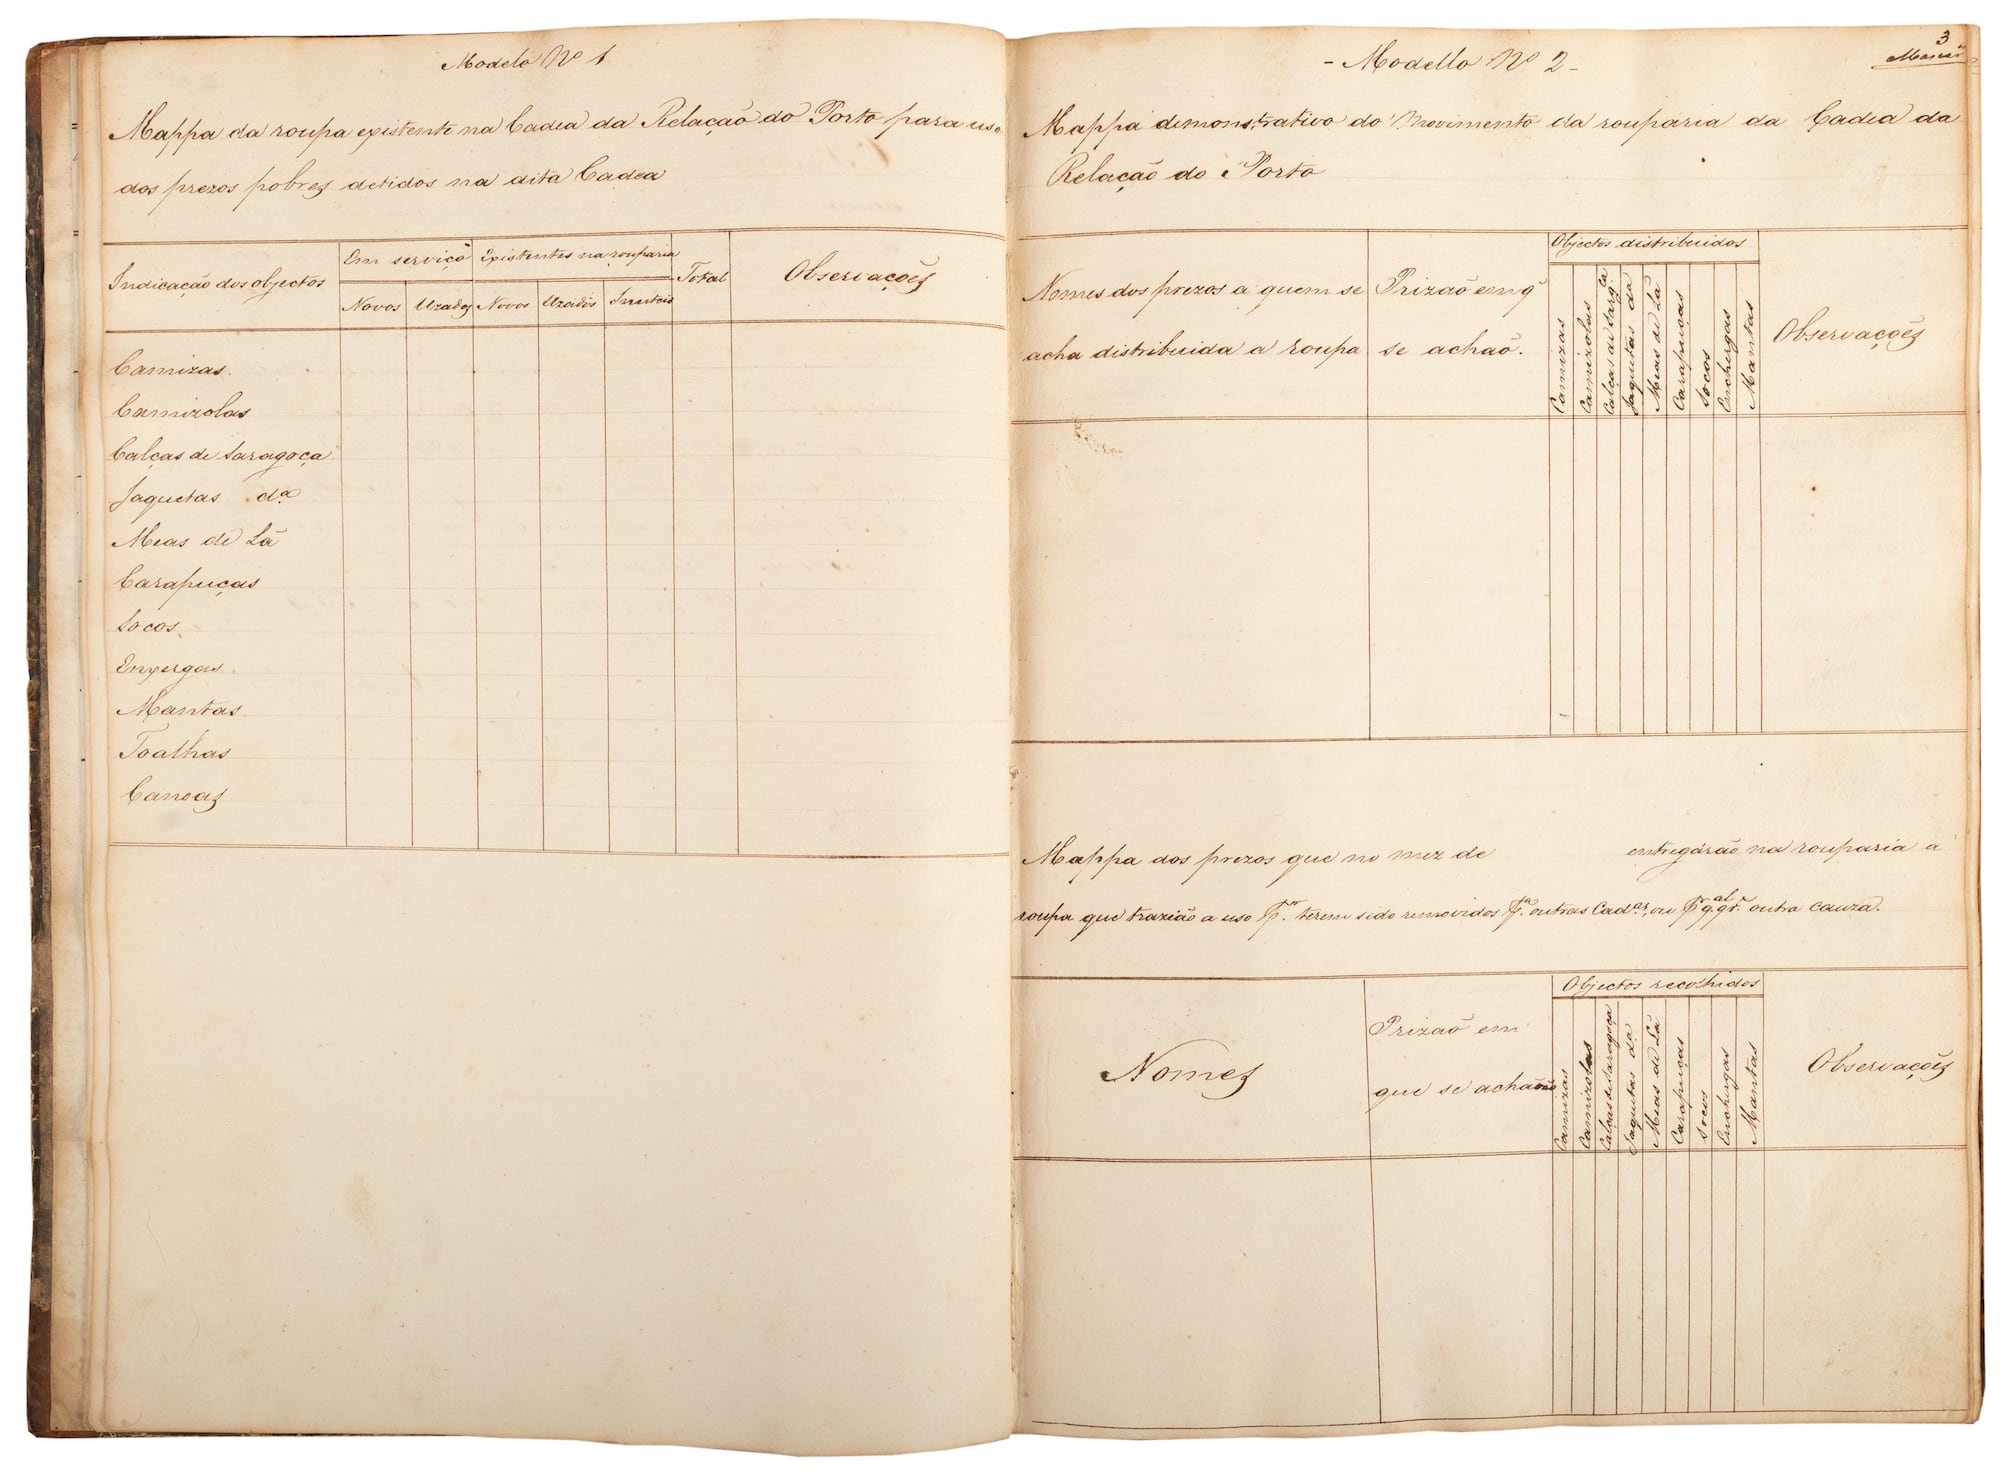 Modelo Nº 1
Mappa da roupa existente na Cadea da Relação do Porto para uso
dos prezos pobres detidos na dita Cadea
Indicação dos objectos
Em serviço
Existentes na rouparia
Total
Observações
Novos
Uzados
Novos
Uzados
Inuteis
Camizas.
Camizolas
Calças de Saragoça
Jaquetas dª
Meas de Lã
Carapuças
Socos
Enxergas.
Mantas
Toalhas
Canoas
3
- Modello Nº 2 -
Mappa dimonstrativo do Movimento da rouparia da Cadea da
Relação do Porto
Nomes dos prezos a quem se
acha distribuida a roupa
Prizão em q'
se achaõ.
Objectos distribuidos
Camizas
Camizolas
Calças de Sarg.ça
Jaquetas dª
Meas de Lã
Carapuças
Socos
Enchergas
Mantas
Observações
Mappa dos prezos que no mez de entregárão na rouparia a
roupa que trazião a uso P.r terem sido removidos P.ª outras Cad.as, ou Pr q.q.r al outra cauza.
Nomes
Prizaõ em
que se achaõ
Objectos recolhidos
Camizas
Camizolas
Calças de Saragoça
Jaquetas dª
Meas de Lã
Carapuças
Socos
Enchergas
Mantas
Observações